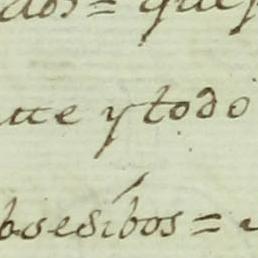 dos = que
tte y todo
bsesibos =